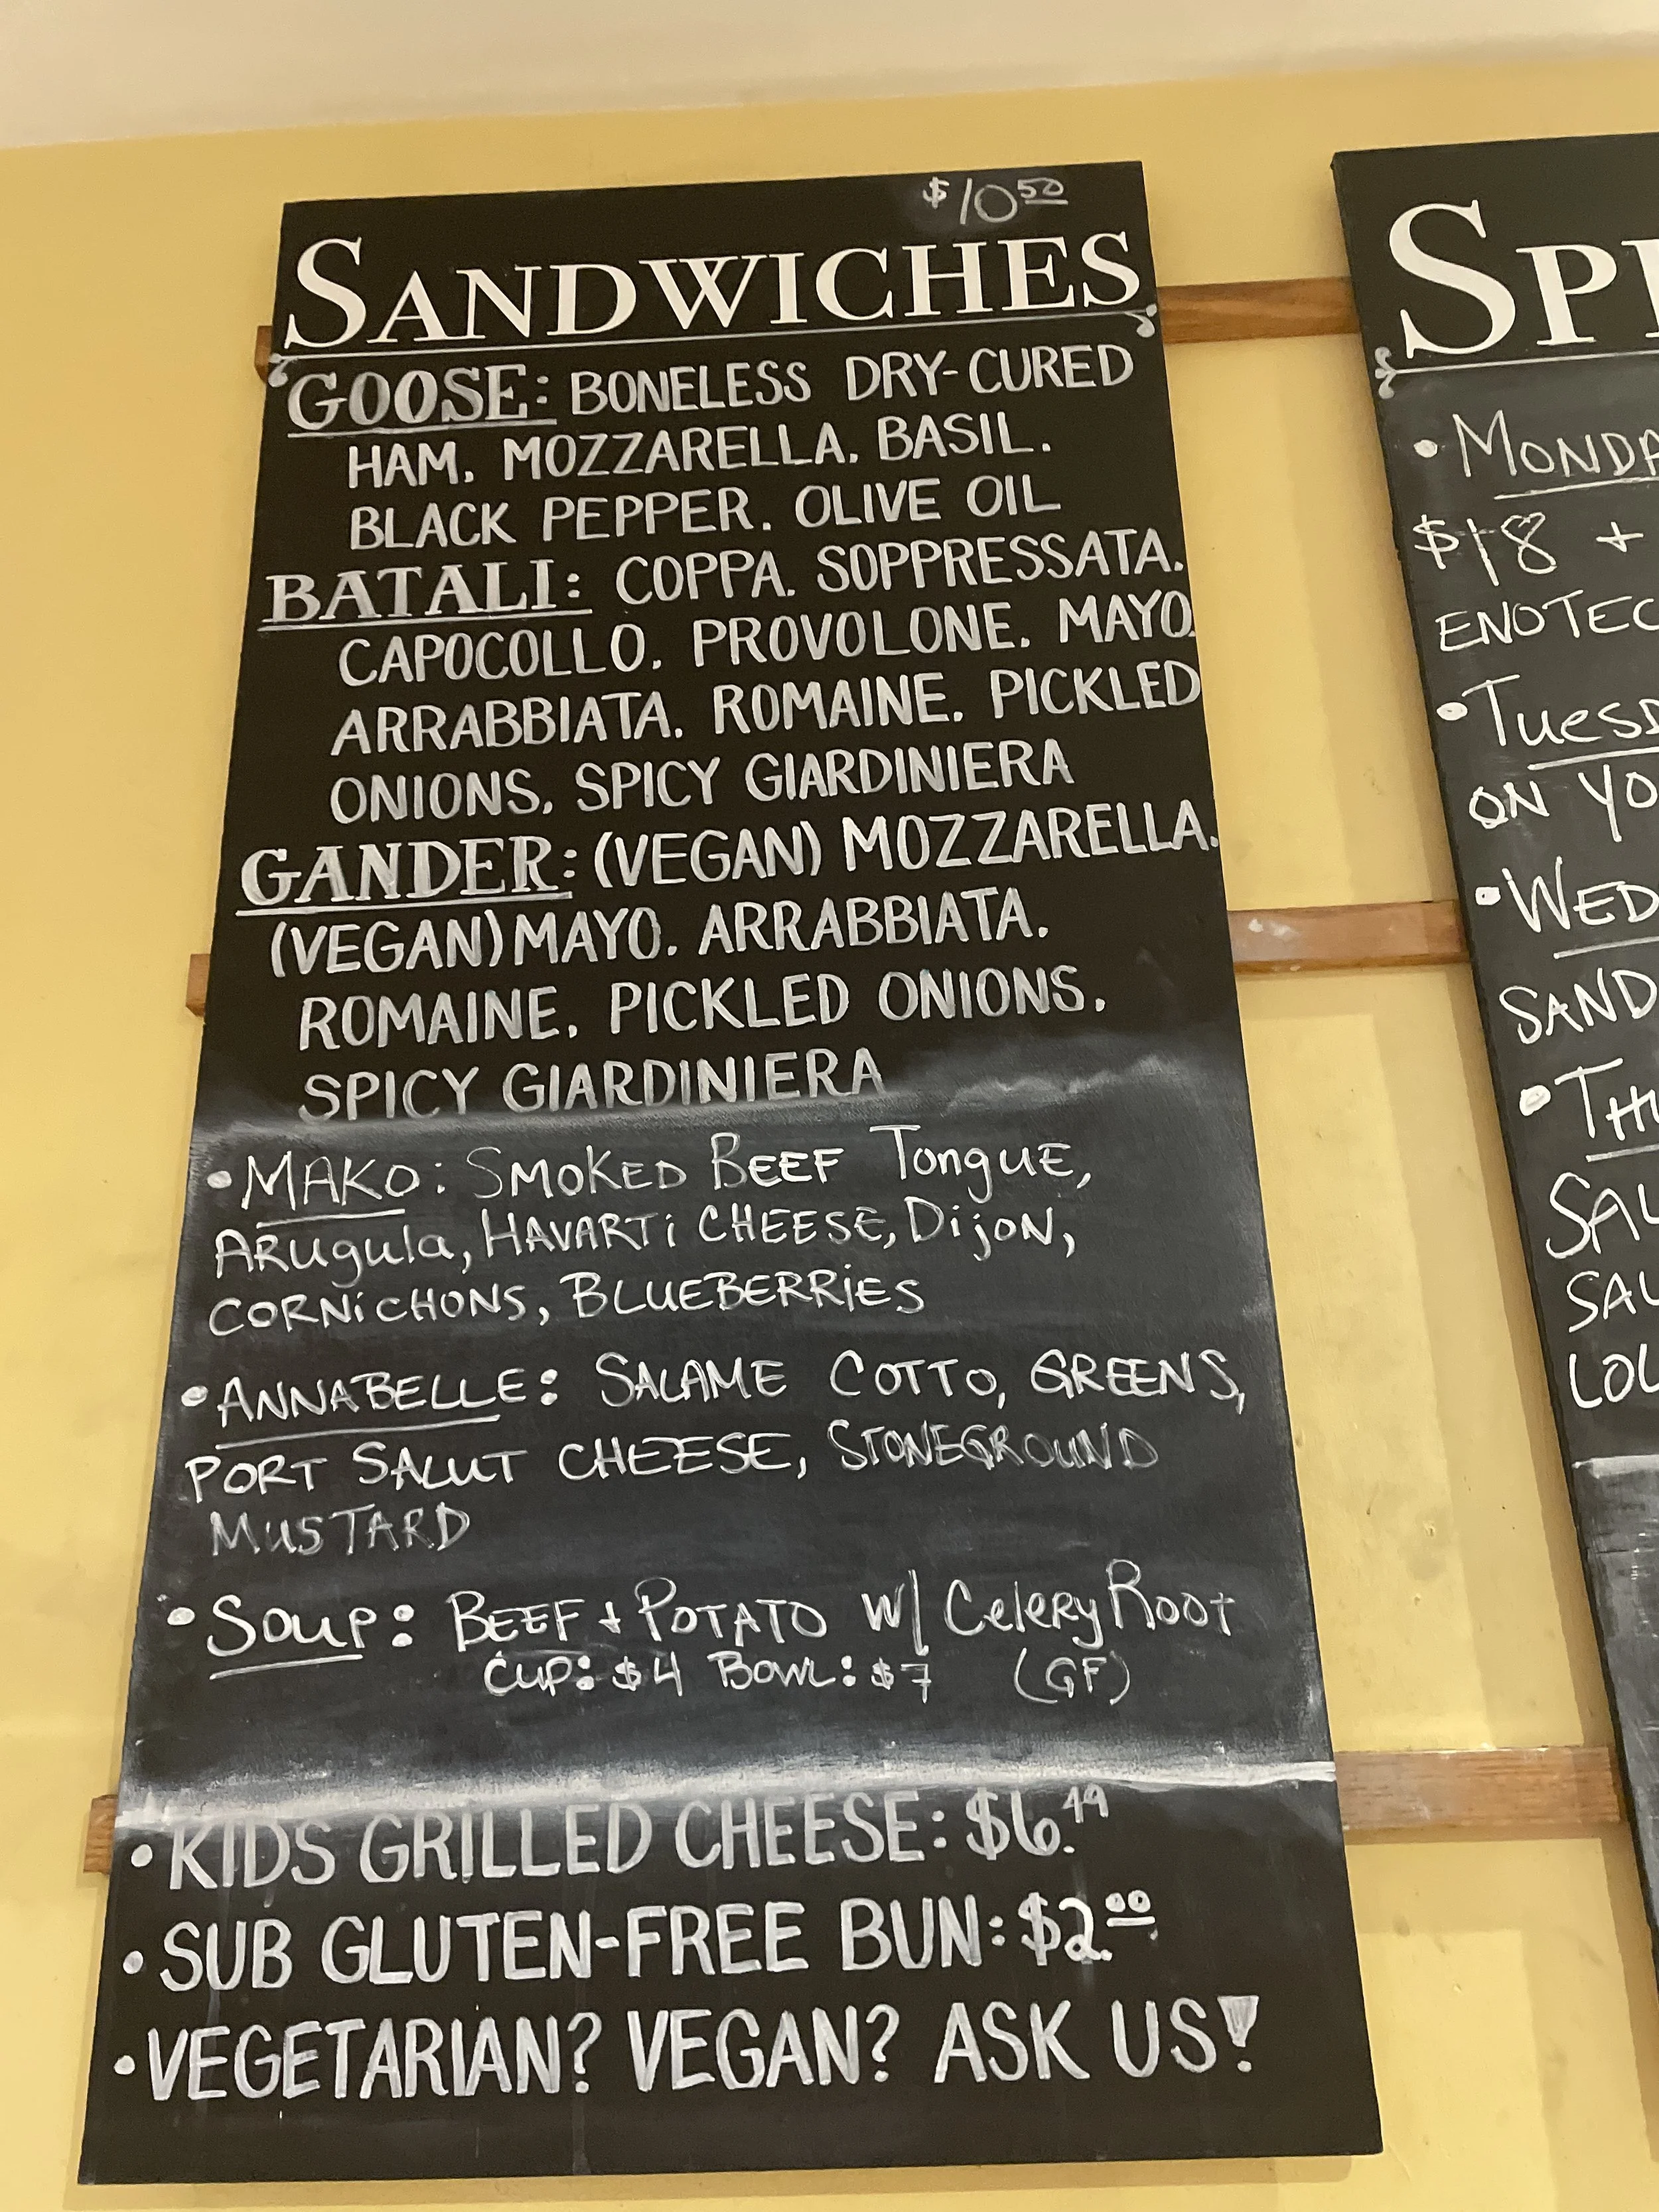 $10 50
SANDWICHES
GOOSE: BONELESS DRY-CURED
HAM. MOZZARELLA. BASIL.
BLACK PEPPER. OLIVE OIL
BATALI: COPPA. SOPPRESSATA.
CAPOCOLLO. PROVOLONE. MAYO.
ARRABBIATA. ROMAINE. PICKLED
ONIONS. SPICY GIARDINIERA
GANDER: (VEGAN) MOZZARELLA.
(VEGAN) MAYO. ARRABBIATA.
ROMAINE. PICKLED ONIONS.
SPICY GIARDINIERA
• MAKO: SMOKED BEEF TonguE,
ARugula, HAVARTi CHEESE, DijoN,
CORNiCHONS, BLUEBERRiES
• ANNABELLE: SALAME COTTO, GREENS,
PORT SALUT CHEESE, STONEGROUND
MUSTARD
• Soup: BEEF + POTATO W/ CeleRy RooT
Cup: $4 BOWL: $7 (GF)
• KIDS GRILLED CHEESE: $6.49
• SUB GLUTEN-FREE BUN: $2.00
• VEGETARIAN? VEGAN? ASK US!
SP
• MONDA
$18 +
ENOTEC
• TuesD
ON YO
• WED
SAND
• THU
SAL
SAL
LOL